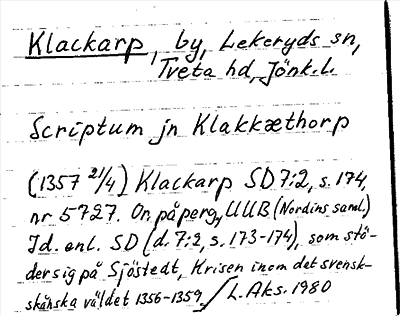 Klackarp, by, Lekeryds sn,
Tveta hd, Jönk.l.
Scriptum jn Klakkæthorp
(1357 21/4) Klackarp SD 7:2, s. 174,
nr 5727. Or. på perg., UUB (Nordins saml.)
Id. enl. SD (d. 7:2, s. 173-174), som stö-
der sig på Sjöstedt, Krisen inom det svensk-
skånska väldet 1356-1359. / L. Aks. 1980